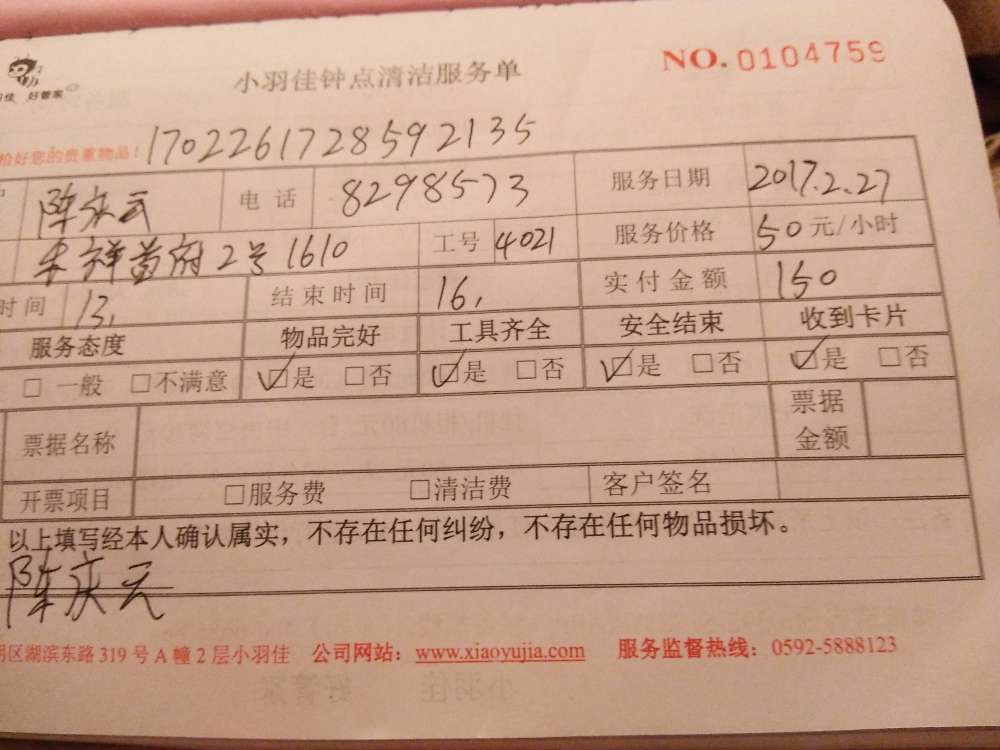 小羽佳钟点清洁服务单 NO.0104759
佳 好管家
拾好您的贵重物品! 1702261728592135
陈庆云 电话 8298573 服务日期 2017.2.27
祥首府2号1610 工号 4021 服务价格 50元/小时
时间 13. 结束时间 16. 实付金额 150
服务态度 物品完好 工具齐全 安全结束 收到卡片
□一般 □不满意 ☑是 □否 ☑是 □否 ☑是 □否 ☑是 □否
票据名称 票据金额
开票项目 □服务费 □清洁费 客户签名
以上填写经本人确认属实，不存在任何纠纷，不存在任何物品损坏。
陈庆云
明区湖滨东路319号A幢2层小羽佳 公司网站：www.xiaoyujia.com 服务监督热线：0592-5888123